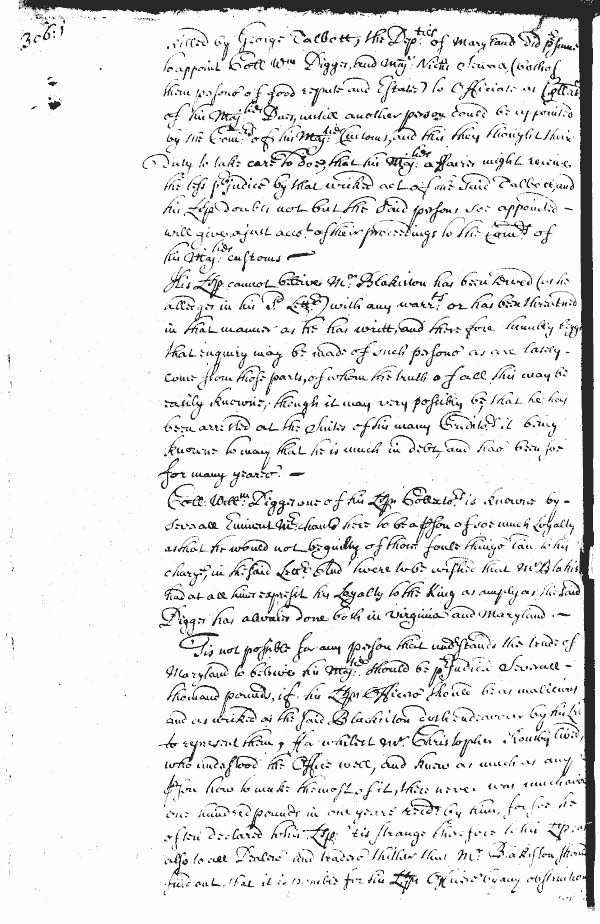 306:1
killed by George Talbott, the Dep:ties of Maryland did p'sume
to appoint Coll Wm Digges, and Maj: Nichs Sewall (both of
them persons of good repute and Estate) to Officiate as Collectrs
of his Maj:ties Dues, untill another person could be appointed
by the Com:rs of his Maj:ties Customs, and this they thought their
Duty to take care to doe, that his Maj:ties affaires might receive
the less p'judice by that wicked act of the said Talbott, and
his Lsp doubts not but the said persons soe appointed -
will give a just acct. of their proceedings to the Com:rs of
his Maj:ties customs -
His Lsp cannot believe Mr. Blakiston has been served (as he
alleges in his sd. Lettr) with any warr:ts or has been threatned
in that manner as he has writt, and therefore humbly beggs
that enquiry may be made of such persons as are lately -
come from those parts, of whom the truth of all this may be
easily knowne, though it may very possibly be, that he has
been arrested at the Suites of his many Creditors, it being
knowne to many that he is much in debt, and has been soe
for many yeares. -
Coll. Willm. Digges one of his Lsps Collectors is knowne by -
severall Eminent Merchants here to be a p'son of soe much Loyalty
as that he would not be guilty of those foule things laid to his
charge, in the said Lettr. And 'twere to be wished that Mr Blakis
had at all times exprest his Loyalty to the King as amply as the said
Digges has alwaies done both in Virginia and Maryland. -
Tis not possible for any person that understands the trade of
Maryland to believe his Maj:tie should be p'judiced severall -
thousand pounds, if his Lsps Officers should be as malicious
and as wicked as the said Blackiston doth endeavour by his Lr
to represent them, ffor whilest Mr. Christopher Rousby lived,
who understood the Office well, and knew as much as any
p'son how to make the most of it, there never was much above
one hundred pounds in one yeare recd. by him, for soe he
often declared to his Lsp, 'tis strange therefore to his Lsp, as
also to all Dealers and traders thither that Mr Blakiston should
find out, that it is possible for his Lsps Officers by any obstruction